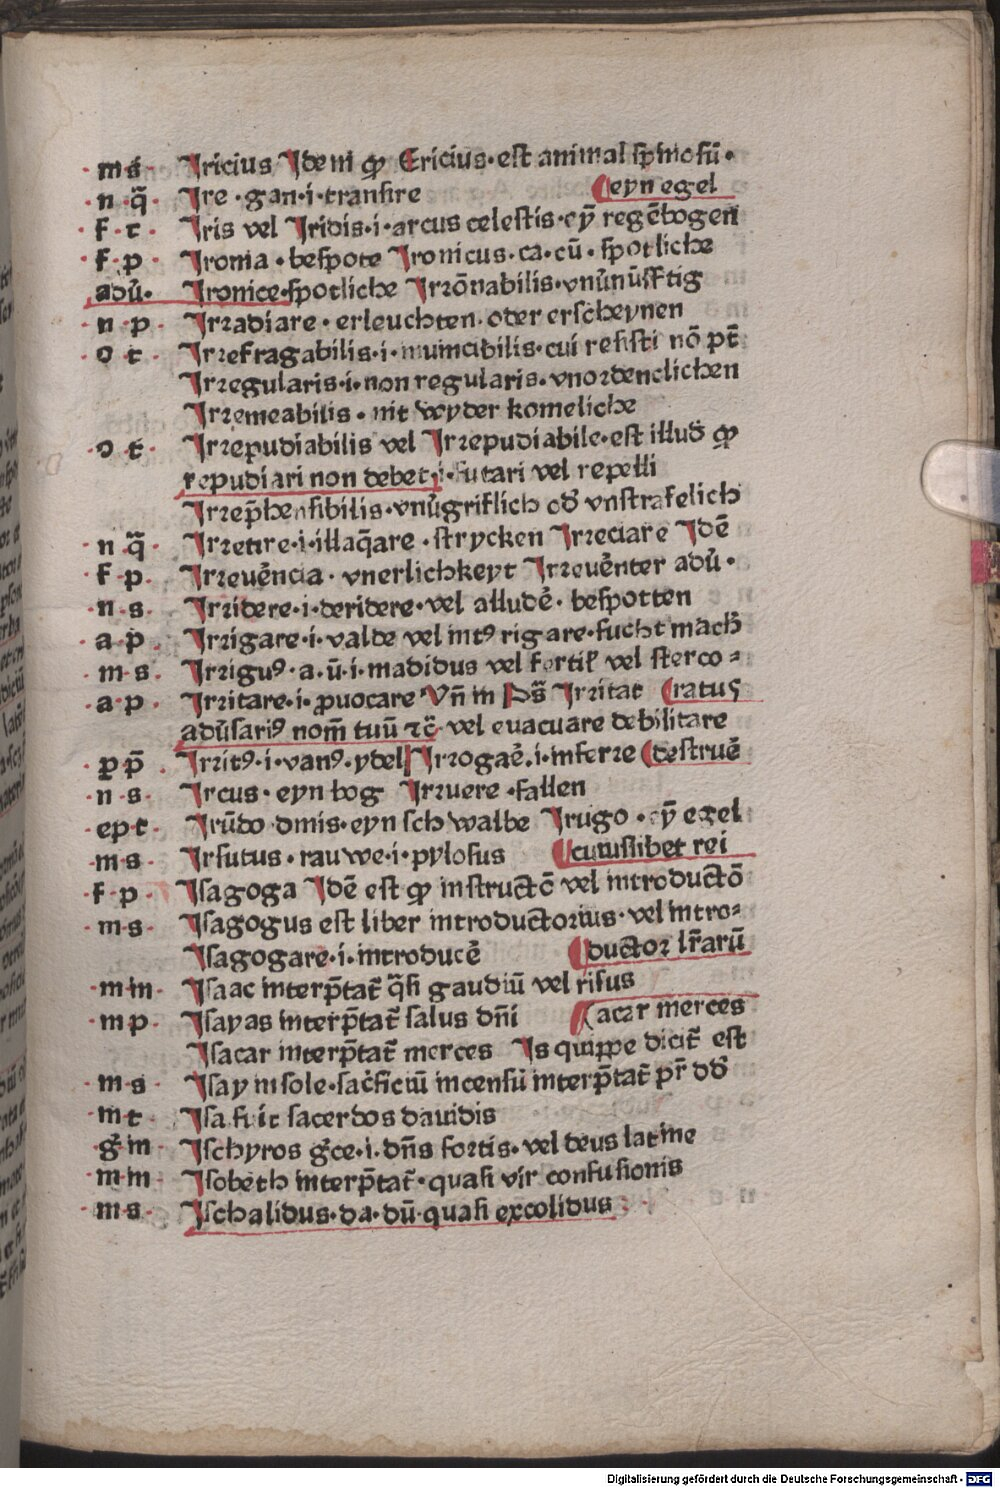 ·m·s· Iricius Idem qꝫ Ericius·est animal spinosū·
·n·q̄· Ire·gan·i·transire ⸿eyn egel
·f·t· Iris vel Iridis·i·arcus celestis·eȳ regēbogen
·f·p· Ironia·bespote Ironicus·ca·cū·spotliche
adv̉· Ironice·spotliche Irrōnabilis·vnu̇nu̇fftig
·n·p· Irradiare·erleuchten·oder erscheynen
·o·t· Irrefragabilis·i·inuincibilis·cui resisti nō pt̄
Irregularis·i·non regularis·vnordenclichen
Irremeabilis·nit wyder komeliche
·o·t· Irrepudiabilis vel Irrepudiabile·est illud qꝫ
repudiari non debet·i·futari vel repelli
Irrep̄hensibilis·vnu̇griflich od̓ vnstrafelich
·n·q̄· Irretire·i·illaq̄are·strycken Irreciare Idē
·f·p· Irreuēncia·vnerlichkeyt Irreuēnter adu̇·
·n·s· Irridere·i·deridere·vel alludē·bespotten
·a·p· Irrigare·i·valde vel int9 rigare·fucht mach̓
·m·s· Irrigu9·a·ū·i·madidus vel fertil̓ vel sterco=
·a·p· Irritare·i·ꝓuocare Vn̄ in Ps̄ Irritat ⸿ratus
adu̇sari9 nom̄ tuū ⁊c̄·vel euacuare debilitare
ꝑ p̄· Irrit9·i·van9·ydel Irrogaē·i·inferre ⸿destruē
·n·s· Ircus·eyn bog Irruere·fallen
ep·t· Irūdo dinis·eyn schwalbe Irugo·eȳ egel
·m·s· Irsutus·rauwe·i·pylosus ⸿cuiuslibet rei
f·p· Isagoga Idē est qꝫ instructō vel introductō
·m·s· Isagogus est liber introductorius·vel intro=
Isagogare·i·introducē ⸿ductor lr̄arū
·m·m· Isaac interp̄tat̄ q̄si gaudiū vel risus
·m·p· Isayas interp̄tat̄ salus dn̄i ⸿acar merces
Isacar interp̄tat̄ merces Is quippe dicit̄ est
·m·s· Isay insole·sac̓ficiū incensū interp̄tat̄ pr̄ dd̓
·m·t· Isa fuit sacerdos dauidis
·g̓·m· Ischyros g̓ce·i·dn̄s fortis·vel deus latine
·m·m· Isobeth interp̄tat̄·quasi vir confusionis
·m·s· Ischalidus·da·dū·quasi excolidus
Digitalisierung gefördert durch die Deutsche Forschungsgemeinschaft · DFG